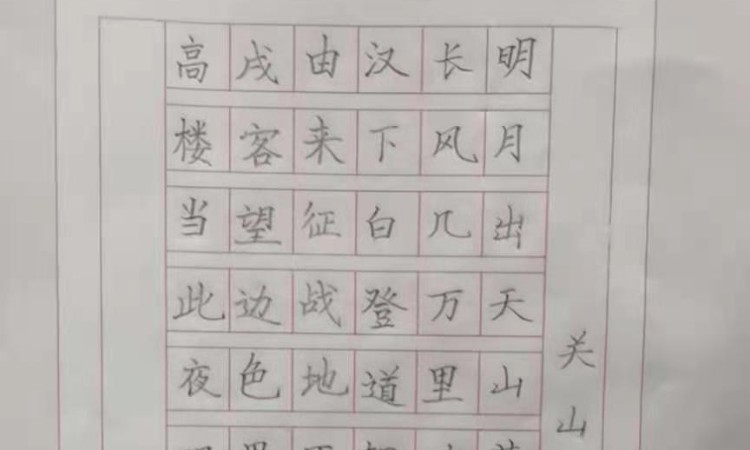 关山
明月出天山
长风几万里
汉下白登道
由来征战地
戍客望边色
高楼当此夜